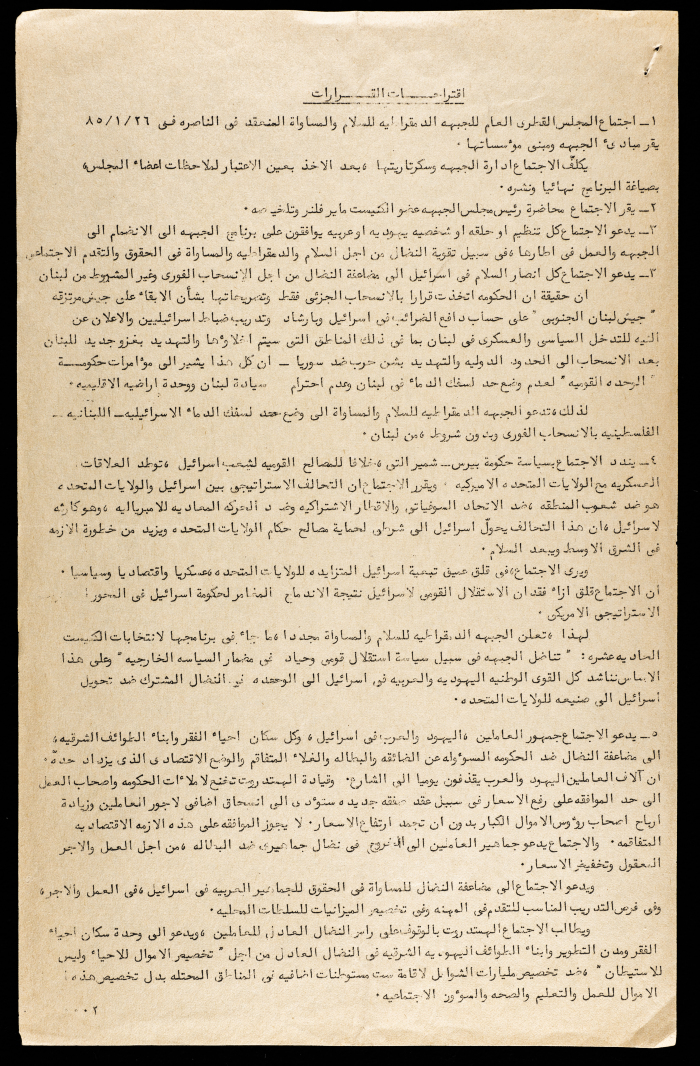 اقتراحـــات القـــرارات
١ــ اجتماع المجلس القطرى العام للجبهه الدمقراطيه للسلام والمساواة المنعقد فى الناصره فــى ٨٥/١/٢٦
يقر مبادىء الجبهه ومبنى مؤسساتها ٠
يكلّف الاجتماع ادارة الجبهه وسكرتاريتها ، بعد الاخذ بعين الاعتبار لملاحظات اعضاء المجلس،
بصياغة البرنامج نهائيا ونشره ٠
٢ــ يقر الاجتماع محاضرة رئيس مجلس الجبهه عضو الكنيست ماير فلنر وتلخيصه ٠
٣ــ يدعو الاجتماع كل تنظيم او حلقه او شخصيه يهوديه او عربيه يوافقون على برنامج الجبهه الى الانضمام الى
الجبهه والعمل فى اطارها ، فى سبيل تقوية النضال من اجل السلام والدمقراطيه والمساواة فى الحقوق والتقدم الاجتماعى
٣ــ يدعو الاجتماع كل انصار السلام فى اسرائيل الى مضاعفة النضال من اجل الانسحاب الفورى وغير المشروط من لبنان
ان حقيقة ان الحكومه اتخذت قرارا بالانسحاب الجزئى فقط وتصريحاتها بشأن الابقاء على جيش مرتزقه
" جيش لبنان الجنوبي " على حساب دافع الضرائب فى اسرائيل وبارشاد وتدريب ضباط اسرائيليين والاعلان عن
النيه للتدخل السياسى والعسكرى فى لبنان بما فى ذلك المناطق التى سيتم اخلاؤها والتهديد بغزو جديد للبنان
بعد الانسحاب الى الحدود الدوليه والتهديد بشن حرب ضد سوريا ــ ان كل هذا يشير الى مؤامرات حكومــة
" الوحده القوميه " لعدم وضع حد لسفك الدماء فى لبنان وعدم احترام سيادة لبنان ووحدة اراضيه الاقليميه ٠
لذلك ، تدعو الجبهه الدمقراطيه للسلام والمساواة الى وضع حد لسفك الدماء الاسرائيليه ــ اللبنانيه ــ
الفلسطينيه بالانسحاب الفورى وبدون شروط ، من لبنان ٠
٤ــ يندد الاجتماع بسياسة حكومة بيرس ــ شمير التى ، خلافا للمصالح القوميه لشعب اسرائيل ، توطد العلاقات
العسكريه مع الولايات المتحده الاميركيه ٠ ويقرر الاجتماع ان التحالف الاستراتيجى بين اسرائيل والولايات المتحده
هو ضد شعوب المنطقه ، ضد الاتحاد السوفياتى والاقطار الاشتراكيه وضد الحركه المعاديه للامبرياليه ، وهو كارثه
لاسرائيل ، ان هذا التحالف يحوّل اسرائيل الى شرطى لحماية مصالح حكام الولايات المتحده ويزيد من خطورة الازمه
فى الشرق الاوسط ويبعد السلام ٠
ويرى الاجتماع ، فى قلق عميق تبعية اسرائيل المتزايده للولايات المتحده ، عسكريا واقتصاديا وسياسيا ٠
ان الاجتماع قلق ازاء فقدان الاستقلال القومى لاسرائيل نتيجة الاندماج المغامر لحكومة اسرائيل فى المحور
الاستراتيجى الامريكى ٠
لهذا ، تعلن الجبهه الدمقراطيه للسلام والمساواة مجددا ، ما جاء فى برنامجها لانتخابات الكنيست
الحاديه عشره : " تناضل الجبهه فى سبيل سياسة استقلال قومى وحياد فى مضمار السياسه الخارجيه " وعلى هذا
الاساس نناشد كل القوى الوطنيه اليهوديه والعربيه فى اسرائيل الى الوحده فى النضال المشترك ضد تحويل
اسرائيل الى صنيعه للولايات المتحده ٠
٥ــ يدعو الاجتماع جمهور العاملين ، اليهود والعرب فى اسرائيل ، وكل سكان احياء الفقر وابناء الطوائف الشرقيه ،
الى مضاعفة النضال ضد الحكومه المسؤوله عن الضائقه والبطاله والغلاء المتفاقم والوضع الاقتصادى الذى يزداد حدّه ٠
ان آلاف العاملين اليهود والعرب يقذفون يوميا الى الشارع ٠ وقيادة الهستدروت تخضع لاملاءات الحكومه واصحاب العمل
الى حد الموافقه على رفع الاسعار فى سبيل عقد صفقه جديده ستؤدى الى انسحاق اضافى لاجور العاملين وزيادة
ارباح اصحاب رؤوس الاموال الكبار بدون ان تجمد ارتفاع الاسعار ٠ لا يجوز الموافقه على هذه الازمه الاقتصاديه
المتفاقمه ٠ والاجتماع يدعو جماهير العاملين الى الخروج فى نضال جماهيرى ضد البطاله ، من اجل العمل والاجر
المعقول وتخفيض الاسعار ٠
ويدعو الاجتماع الى مضاعفة النضال للمساواة فى الحقوق للجماهير العربيه فى اسرائيل ، فى العمل والاجر ،
وفى فرص التدريب المناسب للتقدم فى المهنه وفى تخصيص الميزانيات للسلطات المحليه ٠
ويطالب الاجتماع الهستدروت بالوقوف على رأس النضال العادل للعاملين ، ويدعو الى وحدة سكان احياء
الفقر ومدن التطوير وابناء الطوائف اليهوديه الشرقيه فى النضال العادل من اجل " تخصيص الاموال للاحياء وليس
للاستيطان " ، ضد تخصيص مليارات الشواقل لاقامة ست مستوطنات اضافيه فى المناطق المحتله بدل تخصيص هذه
الاموال للعمل والتعليم والصحه والشؤون الاجتماعيه ٠
٢ ٠٠